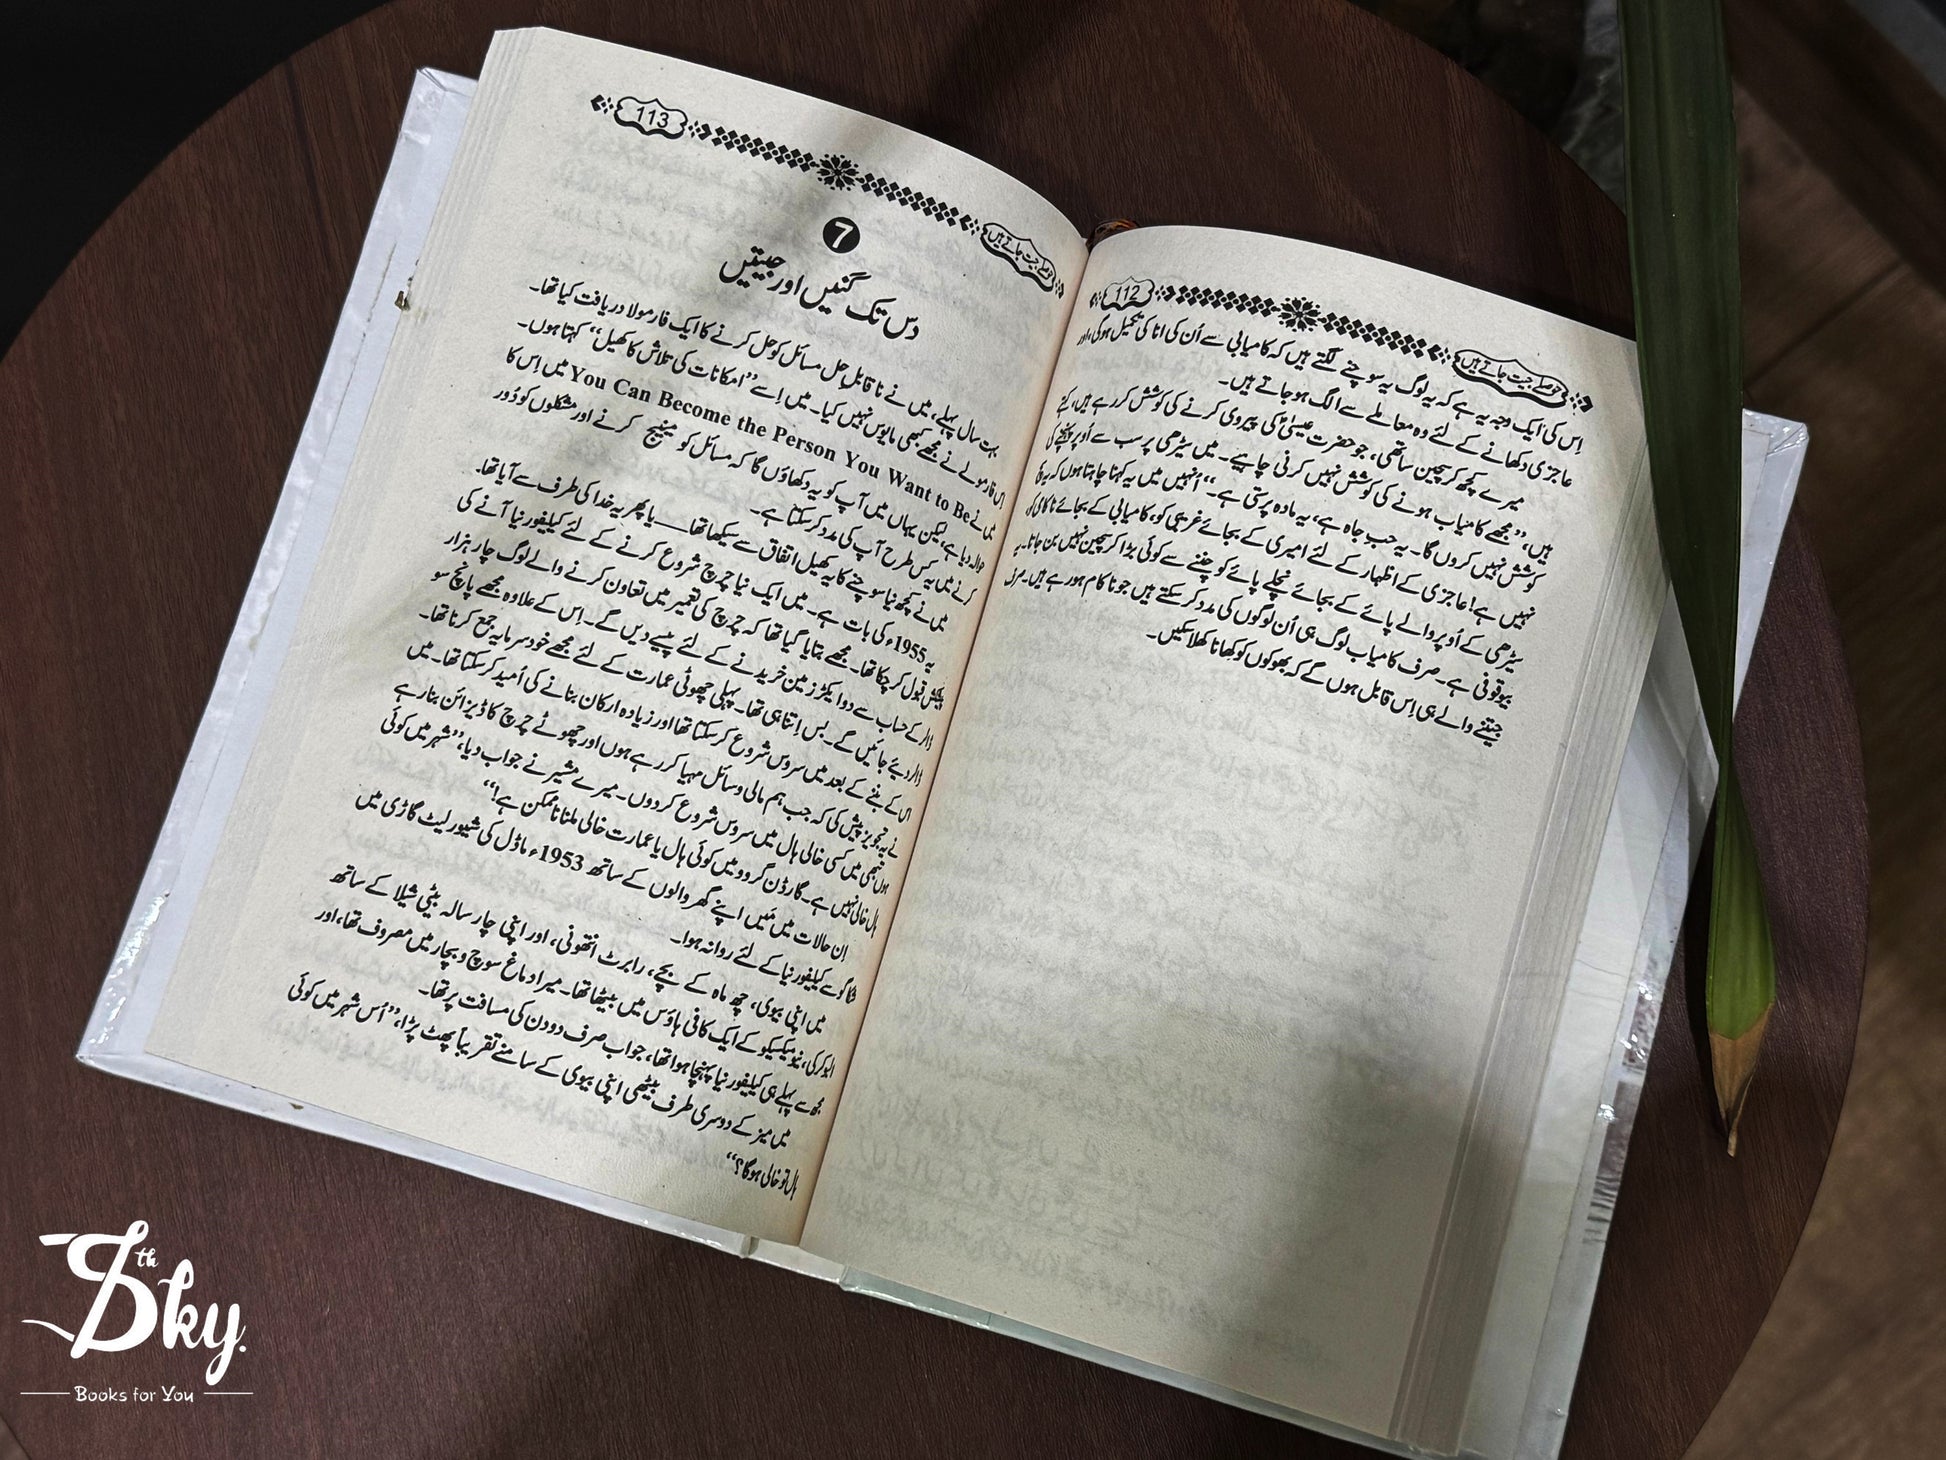 112
حوصلے جیت جاتے ہیں
اِس کی ایک وجہ یہ ہے کہ یہ لوگ یہ سوچنے لگتے ہیں کہ کامیابی سے اُن کی انا کی تکمیل ہوگی، اور
عاجزی دکھانے کے لئے وہ معاملے سے الگ ہوجاتے ہیں۔
میرے کچھ کرسچین ساتھی، جو حضرت عیسیٰؑ کی پیروی کرنے کی کوشش کررہے ہیں، کہتے
ہیں، ’’مجھے کامیاب ہونے کی کوشش نہیں کرنی چاہیے۔ میں سیڑھی پر سب سے اُوپر پہنچنے کی
کوشش نہیں کروں گا۔ یہ حب جاہ ہے، یہ مادہ پرستی ہے۔‘‘ اُنہیں میں یہ کہنا چاہتا ہوں کہ یہ
نہیں ہے! عاجزی کے اظہار کے لئے امیری کے بجائے غریبی کو، کامیابی کے بجائے ناکامی کو،
سیڑھی کے اُوپر والے پائے کے بجائے نچلے پائے کو چننے سے کوئی بڑا کرسچین نہیں بن جاتا۔ یہ
بیوقوفی ہے۔ صرف کامیاب لوگ ہی اُن لوگوں کی مدد کرسکتے ہیں جو ناکام ہورہے ہیں۔ صرف
جیتنے والے ہی اِس قابل ہوں گے کہ بھوکوں کو کھانا کھلاسکیں۔
113
حوصلے جیت جاتے ہیں
7
دس تک گنیں اور جیتیں
بہت سال پہلے، میں نے ناقابلِ حل مسائل کو حل کرنے کا ایک فارمولا دریافت کیا تھا۔
اِس فارمولے نے مجھے کبھی مایوس نہیں کیا۔ میں اِسے ’’امکانات کی تلاش کا کھیل‘‘ کہتا ہوں۔
میں نے You Can Become the Person You Want to Be میں اِس کا
حوالہ دیا ہے، لیکن یہاں میں آپ کو یہ دکھاؤں گا کہ مسائل کو مینیج کرنے اور مشکلوں کو دُور
کرنے میں یہ کس طرح آپ کی مدد کرسکتا ہے۔
میں نے کچھ نیا سوچنے کا یہ کھیل اتفاق سے سیکھا تھا—— یا پھر یہ خدا کی طرف سے آیا تھا۔
یہ 1955ء کی بات ہے۔ میں ایک نیا چرچ شروع کرنے کے لئے کیلیفورنیا آنے کی
پیشکش قبول کرچکا تھا۔ مجھے بتایا گیا تھا کہ چرچ کی تعمیر میں تعاون کرنے والے لوگ چار ہزار
ڈالر کے حساب سے دو ایکڑ زمین خریدنے کے لئے پیسے دیں گے۔ اِس کے علاوہ مجھے پانچ سو
ڈالر دیئے جائیں گے۔ بس اِتنا ہی تھا۔ پہلی چھوٹی عمارت کے لئے مجھے خود سرمایہ جمع کرنا تھا۔
اس کے بننے کے بعد میں سروس شروع کرسکتا تھا اور زیادہ ارکان بنانے کی اُمید کرسکتا تھا۔ میں
نے یہ تجویز پیش کی کہ جب ہم مالی وسائل مہیا کررہے ہوں اور چھوٹے چرچ کا ڈیزائن بنارہے
ہوں تبھی میں کسی خالی ہال میں سروس شروع کردوں۔ میرے مشیر نے جواب دیا، ’’شہر میں کوئی
ہال خالی نہیں ہے۔ گارڈن گروو میں کوئی ہال یا عمارت خالی ملنا ناممکن ہے!‘‘
اِن حالات میں مَیں اپنے گھر والوں کے ساتھ 1953ء ماڈل کی شیورلیٹ گاڑی میں
شکاگو سے کیلیفورنیا کے لئے روانہ ہوا۔
میں اپنی بیوی، چھ ماہ کے بچے، رابرٹ انتھونی، اور اپنی چار سالہ بیٹی شیلا کے ساتھ
البوکرکی، نیو میکسیکو کے ایک کافی ہاؤس میں بیٹھا تھا۔ میرا دماغ سوچ و بچار میں مصروف تھا، اور
مجھ سے پہلے ہی کیلیفورنیا پہنچا ہوا تھا، جو اب صرف دو دن کی مسافت پر تھا۔
میں میز کے دوسری طرف بیٹھی اپنی بیوی کے سامنے تقریباً پھٹ پڑا، ’’اُس شہر میں کوئی
ہال تو خالی ہوگا؟‘‘
8th Sky.
Books for You